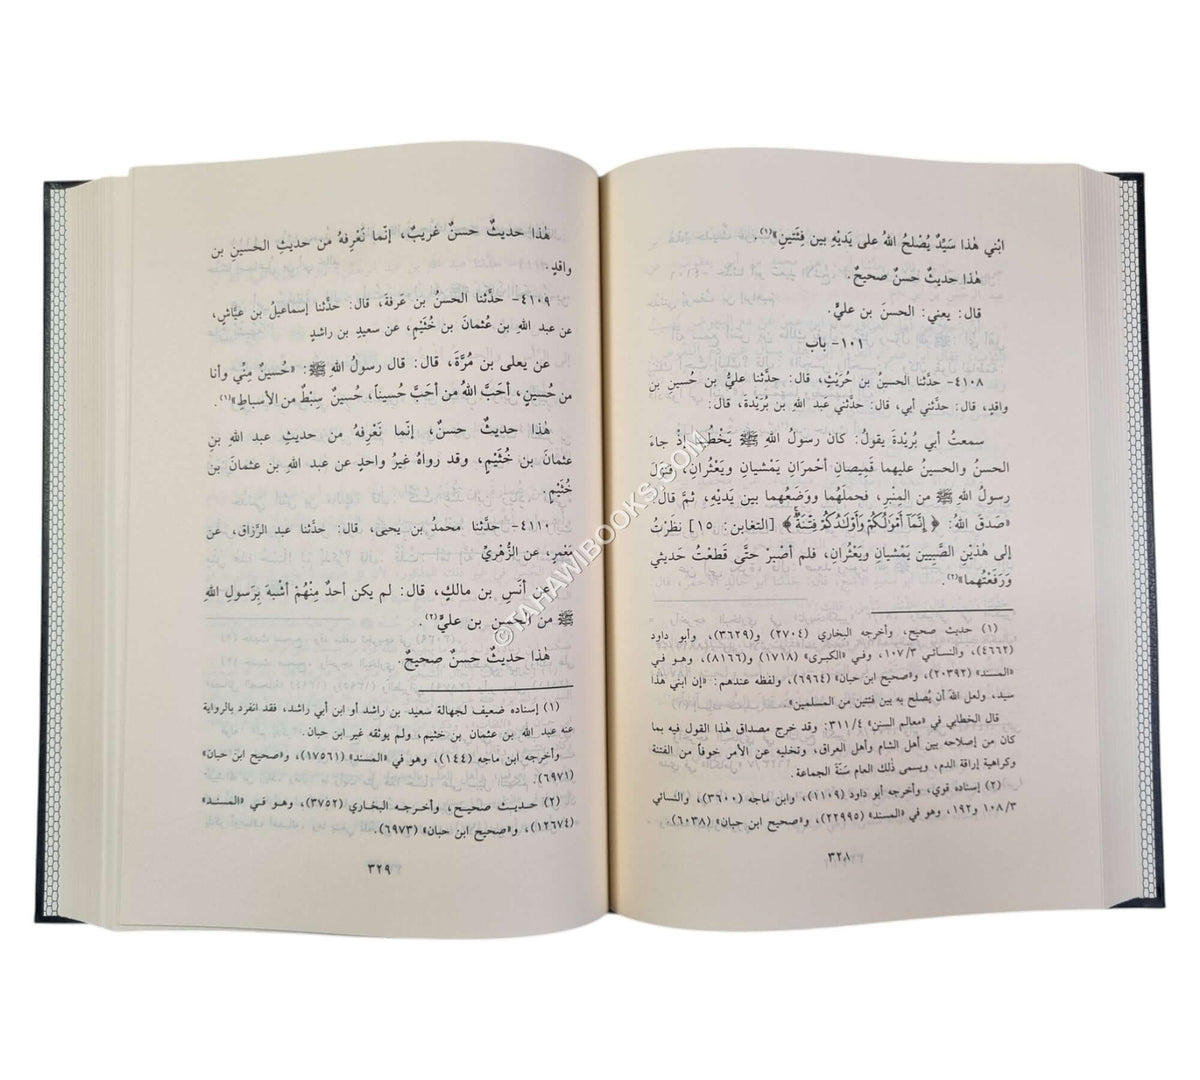 ابني هٰذا سَيِّدٌ يُصْلحُ اللهُ على يَديْهِ بين فِئتَينِ»(١).
هٰذا حديثٌ حسنٌ صحيحٌ.
قال: يعني: الحسنَ بن عليٍّ.
١٠١- باب
٤١٠٨- حدَّثنا الحسينُ بن حُرَيْثٍ، قال: حدَّثنا عليُّ بن حُسينِ بن
واقدٍ، قال: حدَّثني أبي، قال: حدَّثني عبد اللهِ بن بُرَيْدَةَ، قال:
سمعتُ أبي بُريْدةَ يقولُ: كان رسولُ اللهِ ﷺ يَخْطُبُ إذْ جاءَ
الحسنُ والحسينُ عليهما قَميصانِ أحْمرَانِ يَمْشيانِ ويَعْثُرانِ، فنزلَ
رسولُ اللهِ ﷺ من المِنْبرِ، فحملَهُما ووضَعَهُما بين يَديْهِ، ثمَّ قال:
«صَدقَ اللهُ: ﴿إِنَّمَآ أَمْوَٰلُكُمْ وَأَوْلَـٰدُكُمْ فِتْنَةٌ﴾ [التغابن: ١٥] نظرْتُ
إلى هٰذَيْنِ الصَّبِيينِ يَمْشيانِ ويَعْثُرانِ، فلم أصْبرْ حتَّى قَطَعْتُ حَديثي
وَرَفَعْتُهما»(٢)
(١) حديث صحيح، وأخرجه البخاري (٢٧٠٤) و(٣٦٢٩)، وأبو داود
(٤٦٦٢)، والنسائي ١٠٧/٣، وفي «الكبرى» (١٧١٨) و(٨١٦٦)، وهو في
«المسند» (٢٠٣٩٢)، و«صحيح ابن حبان» (٦٩٦٤)، ولفظه عندهم: «إن ابني هٰذا
سيد، ولعل اللهَ أن يُصلح به بين فئتين من المسلمين».
قال الخطابي في «معالم السنن» ٣١١/٤: وقد خرج مصداق هٰذا القول فيه بما
كان من إصلاحه بين أهل الشام وأهل العراق، وتخليه عن الأمر خوفاً من الفتنة
وكراهية إراقة الدم، ويسمى ذٰلك العام سَنَةَ الجماعة.
(٢) إسناده قوي، وأخرجه أبو داود (١١٠٩)، وابن ماجه (٣٦٠٠)، والنسائي
١٠٨/٣ و١٩٢، وهو في «المسند» (٢٢٩٩٥)، و«صحيح ابن حبان» (٦٠٣٨).
٣٢٨
هٰذا حديثٌ حسنٌ غريبٌ، إنَّما نَعْرِفهُ من حديثِ الحسينِ بن
واقدٍ.
٤١٠٩- حدَّثنا الحسنُ بن عَرفةَ، قال: حدَّثنا إسماعيلُ بن عيَّاشٍ،
عن عبد اللهِ بن عُثمانَ بن خُثَيْمٍ، عن سعيدِ بن راشدٍ
عن يعلى بن مُرَّةَ، قال: قال رسولُ اللهِ ﷺ: «حُسينٌ مِنِّي وأنا
من حُسينٍ، أحَبَّ اللهُ من أحَبَّ حُسيناً، حُسينٌ سِبْطٌ من الأسباطِ»(١).
هٰذا حديثٌ حسنٌ، إنَّما نَعْرِفه من حديثِ عبد اللهِ بن
عثمانَ بن خُثَيْمٍ، وقد رواهُ غيرُ واحدٍ عن عبد اللهِ بن عثمانَ بن
خُثَيْمٍ.
٤١١٠- حدَّثنا محمدُ بن يحيى، قال: حدَّثنا عبد الرَّزاقِ، عن
مَعْمرٍ، عن الزُّهْريِّ
عن أنَسِ بن مالكٍ، قال: لم يكن أحدٌ مِنْهُمْ أشْبهَ بِرَسولِ اللهِ
ﷺ من الحسنِ بن عليٍّ(٢).
هٰذا حديثٌ حسنٌ صحيحٌ.
(١) إسناده ضعيف لجهالة سعيد بن راشد أو ابن أبي راشد، فقد انفرد بالرواية
عنه عبد الله بن عثمان بن خثيم، ولم يوثقه غير ابن حبان.
وأخرجه ابن ماجه (١٤٤)، وهو في «المسند» (١٧٥٦١)، و«صحيح ابن حبان»
(٦٩٧١).
(٢) حديث صحيح، وأخرجه البخاري (٣٧٥٢)، وهو في «المسند»
(١٢٦٧٤)، و«صحيح ابن حبان» (٦٩٧٣).
٣٢٩
©TAHAWIBOOKS.COM